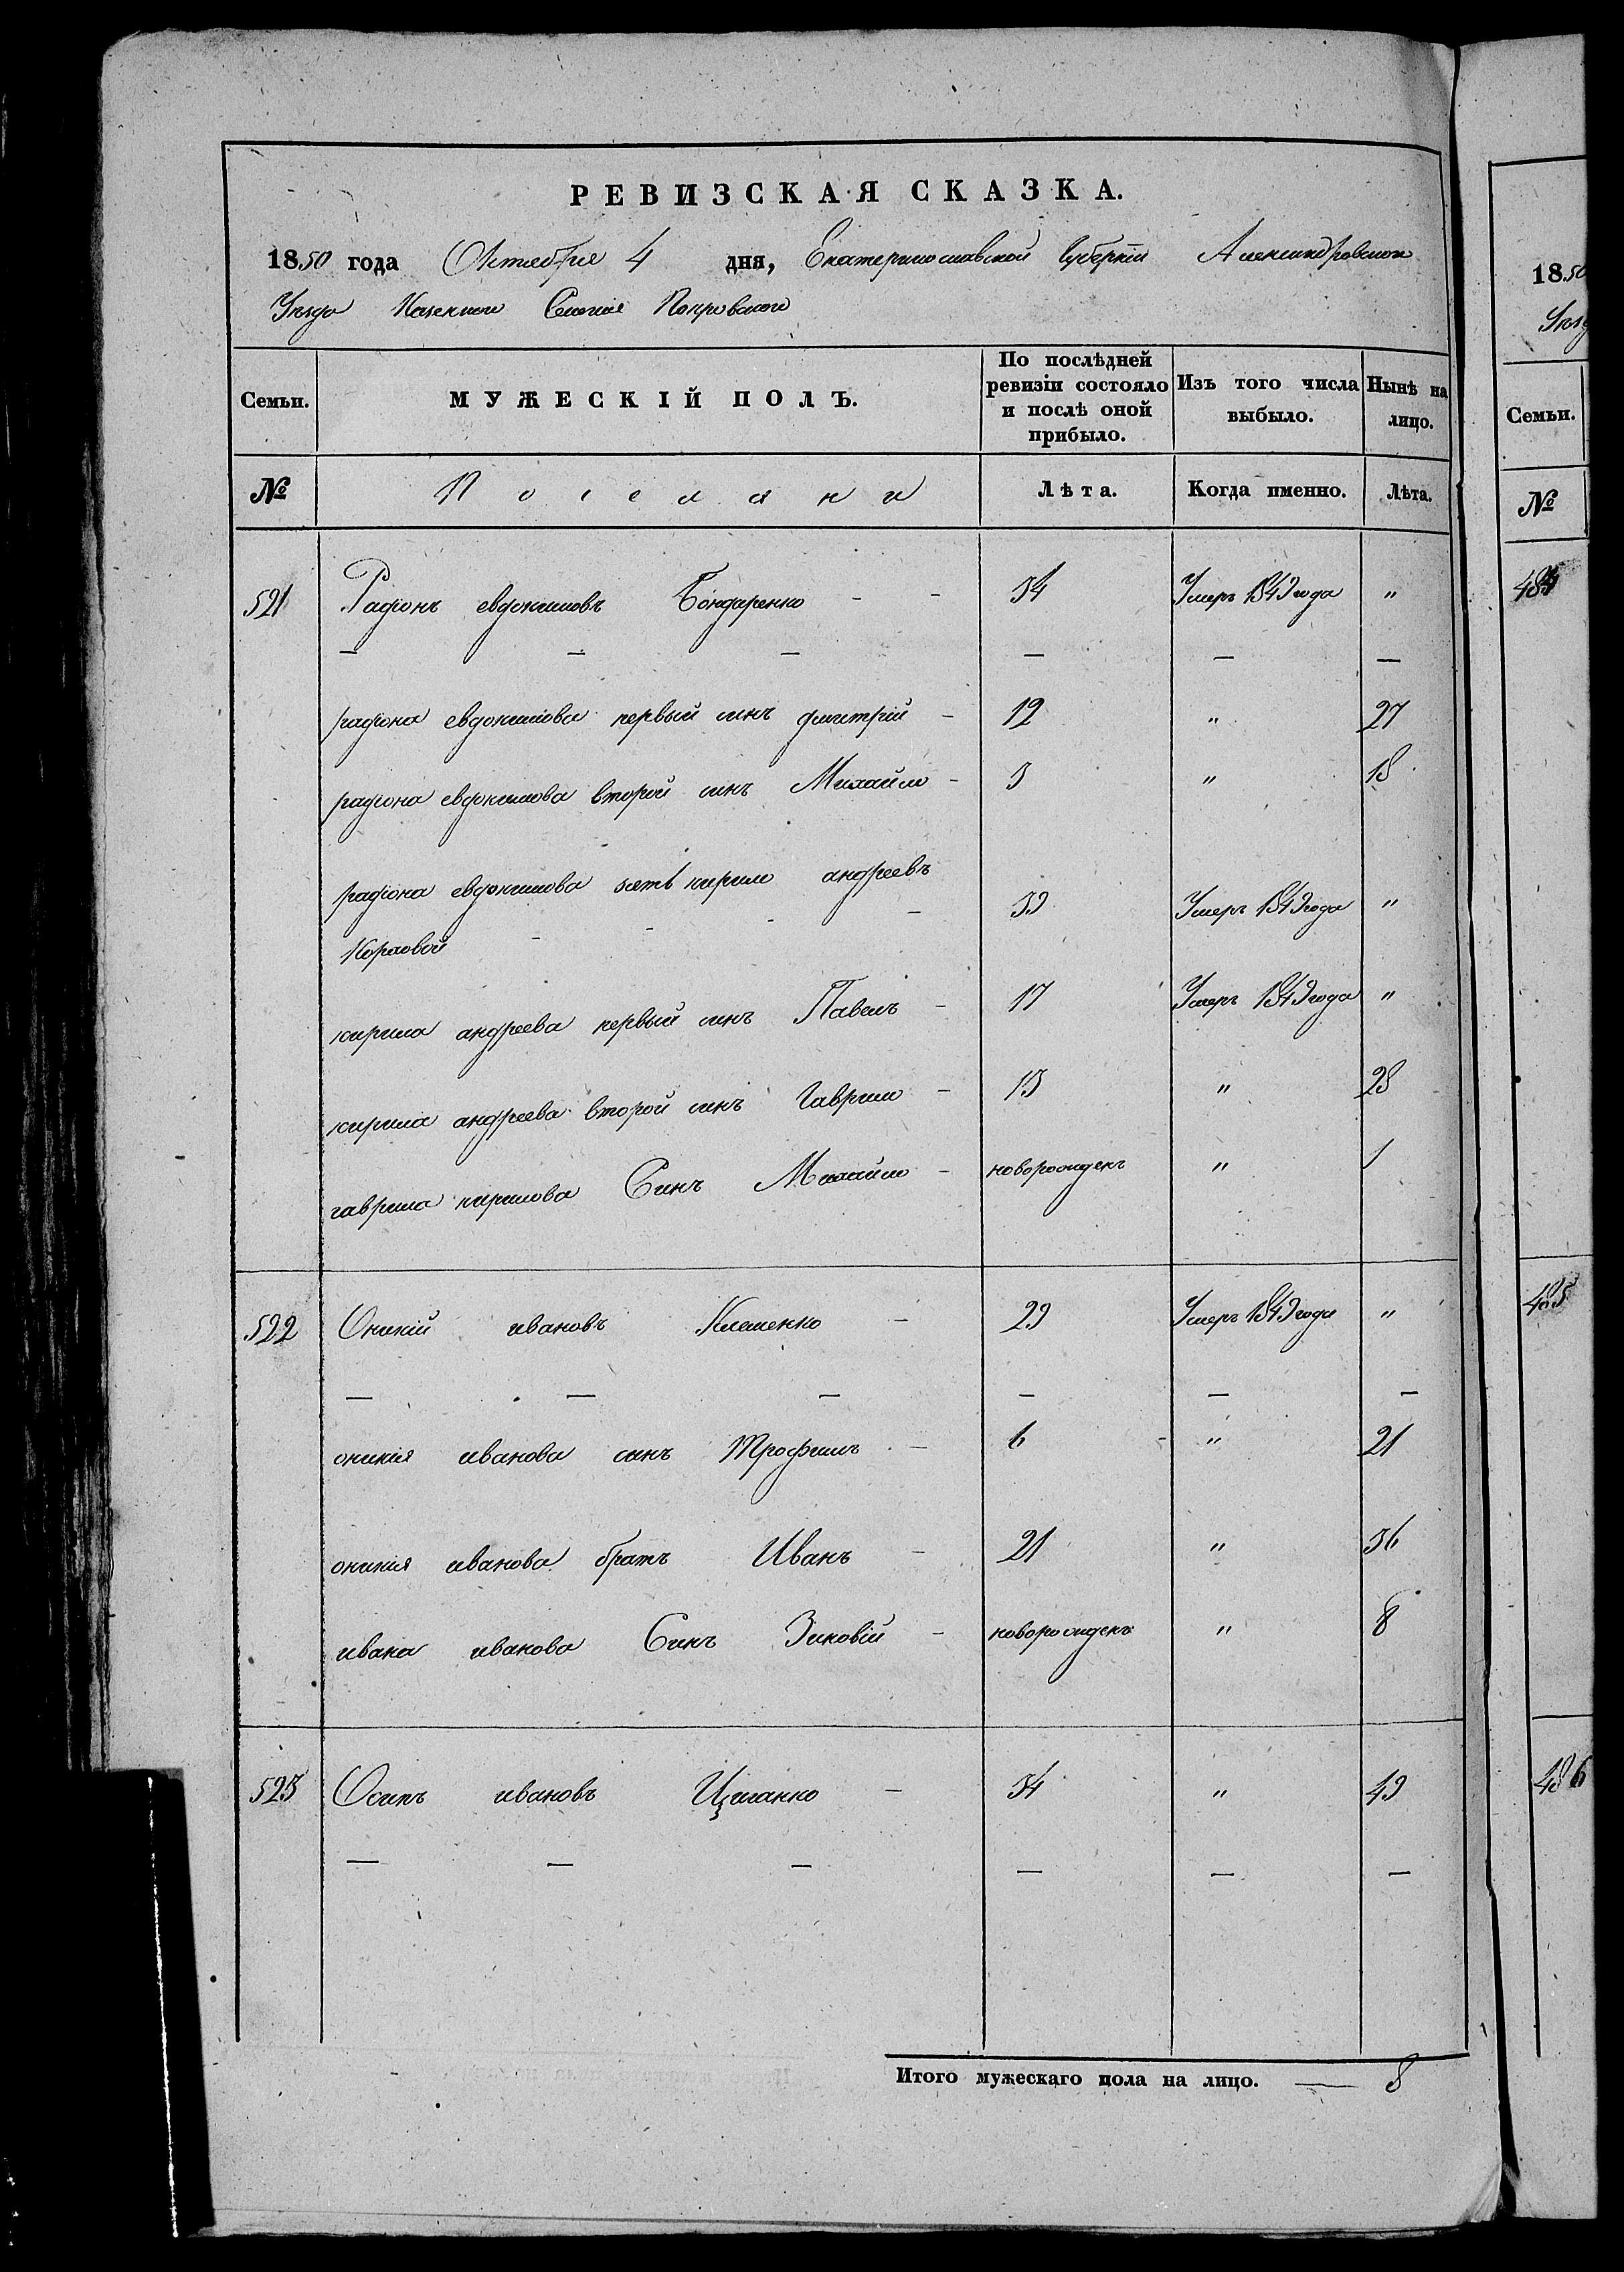 РЕВИЗСКАЯ СКАЗКА.
1850 года Октября 4 дня, Екатеринославской Губерніи Александровского
Уезда Казенного Селенія Покровского
Семьи. МУЖЕСКІЙ ПОЛЪ. По послѣдней ревизіи состояло и послѣ оной прибыло. Изъ того числа выбыло. Нынѣ на лицо.
№ Поселяни Лѣта. Когда именно. Лѣта.
521 Радіонъ евдокимовъ Бондаренко - - 34 Умеръ 1849 года "
— — — — — —
радіона евдокимова первый синъ дмитрій - 12 " 27
радіона евдокимова второй синъ Михайло - 3 " 18
радіона евдокимова зять кирило андреевъ
Коржовой - - - 39 Умеръ 1849 года "
кирила андреева первый синъ Павелъ - 17 Умеръ 1849 года "
кирила андреева второй синъ Гаврило - 13 " 28
гаврила кирилова Синъ Михайло - новорожденъ " 1
522 Оникій ивановъ Клименко - 29 Умеръ 1849 года "
— — — — — —
оникія иванова синъ Трофимъ - 6 " 21
оникія иванова братъ Иванъ - 21 " 36
ивана иванова Синъ Зиновій - новорожденъ " 8
523 Осипъ ивановъ Циганко - 34 " 49
— — — — — —
Итого мужескаго пола на лицо. — 8
1850
Уезд
Семьи.
№
484
485
486